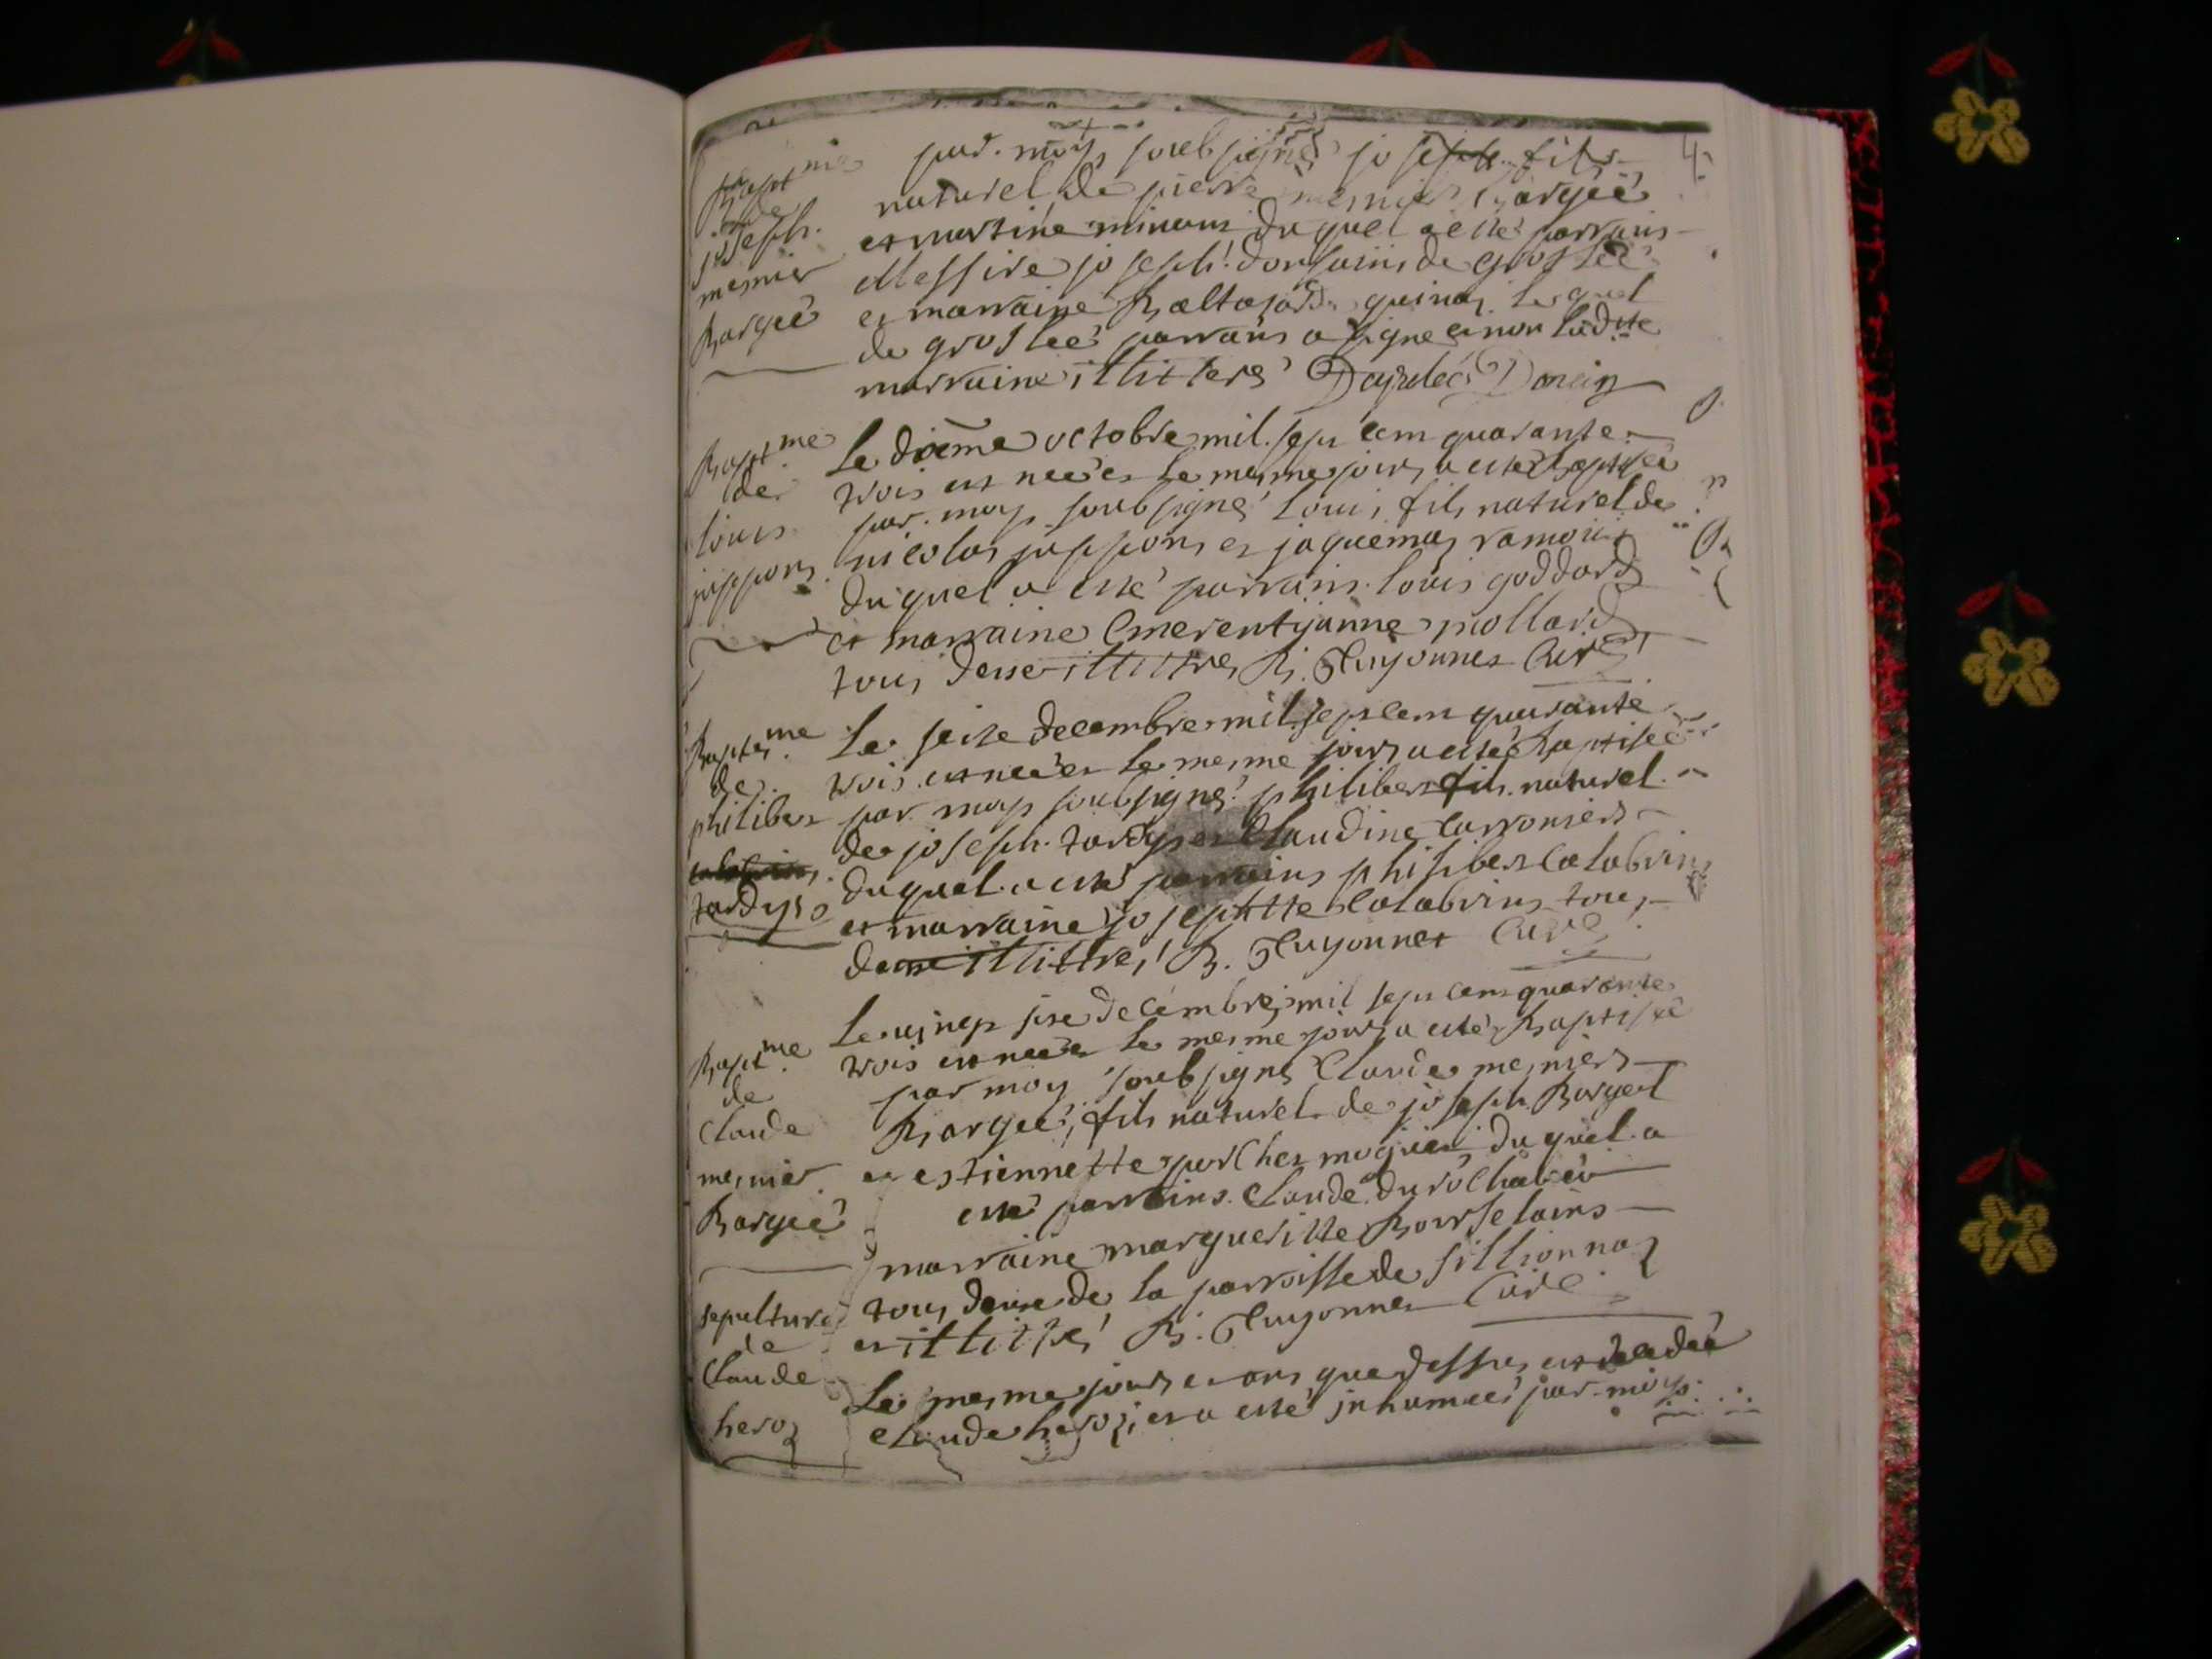 Baptme
de
joseph
mesnier
Bargeé
par moy soubsigné joseph fils
naturel de pierre mesnier Bargeé
et martine du quel a esté parrain
Messire joseph de groslée
et marraine lesquel
de groslée parrain a signe et non ladite
marraine illitteré
Baptme
de
louis
juppon
Le dixme octobre mil sept cent quarante
trois est neé et le mesme jour a esté baptiseé
par moy soubsigné louis fils naturel de
nicolas juppon et jaquemaz
du quel a esté parrain louis goddard
et marraine emerentjanne mollard
tous deux illittré B. Cure
Baptme
de
philiber
tardy
Le seize decembre mil sept cent quarante
trois est neé et le mesme jour a esté Baptiseé
par moy soubsigné philiber fils naturel
de joseph tardy et Claudine Carronier
du quel a esté parrain philiber Calabrin
et marraine josephtte Calabrin tous
deux illittré B. Cure
Baptme
de
Claude
mesnier
Bargeé
Le vingt sixe decembre mil sept cent quarante
trois est neé et le mesme jour a esté Baptiseé
par moy soubsigné Claude mesnier
Bargeé, fils naturel de joseph Bargeé
et estiennette porcher du quel a
esté parrain Claude
marraine margueritte Bourselain
tous deux de la parroisse de sillionnaz
et illittré B. Cure
sepulture
de
Claude
heroz
Le mesme jour et ans que dessus est decedeé
Claude heroz, et a esté inhumeé par moy